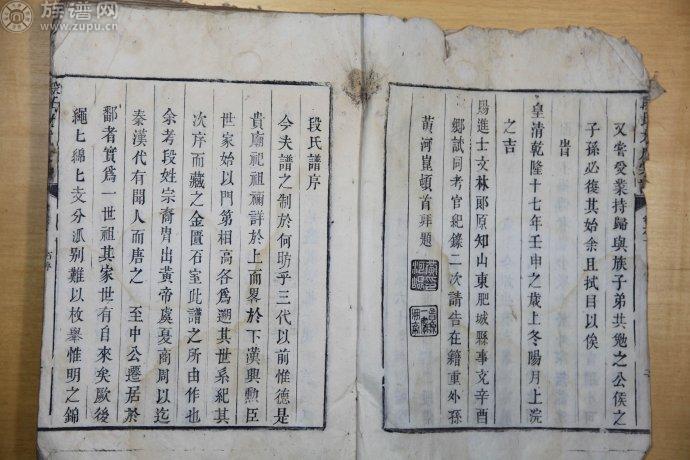 族谱网
www.zupu.cn
又嘗受業持歸與族子弟共勉之公侯之
子孫必復其始余且拭目以俟
旹
皇清乾隆十七年壬申之歲上冬陽月上浣
之吉
賜進士文林郎原知山東肥城縣事充辛酉
鄉試同考官紀錄二次請告在籍重外孫
黃河崑頓首拜題
段氏譜序
今夫譜之制於何昉乎三代以前惟德是
貴廟祀祖禰詳於上而畧於下漢興勲臣
世家始以門第相高各為遡其世系紀其
次序而藏之金匱石室此譜之所由作也
余考段姓宗裔胄出黃帝處夏商周以迄
秦漢代有聞人而唐之 至中公遷居於
鄱者實爲一世祖其家世有自來矣歐後
繩匕綿匕支分派別難以枚舉惟明之錦